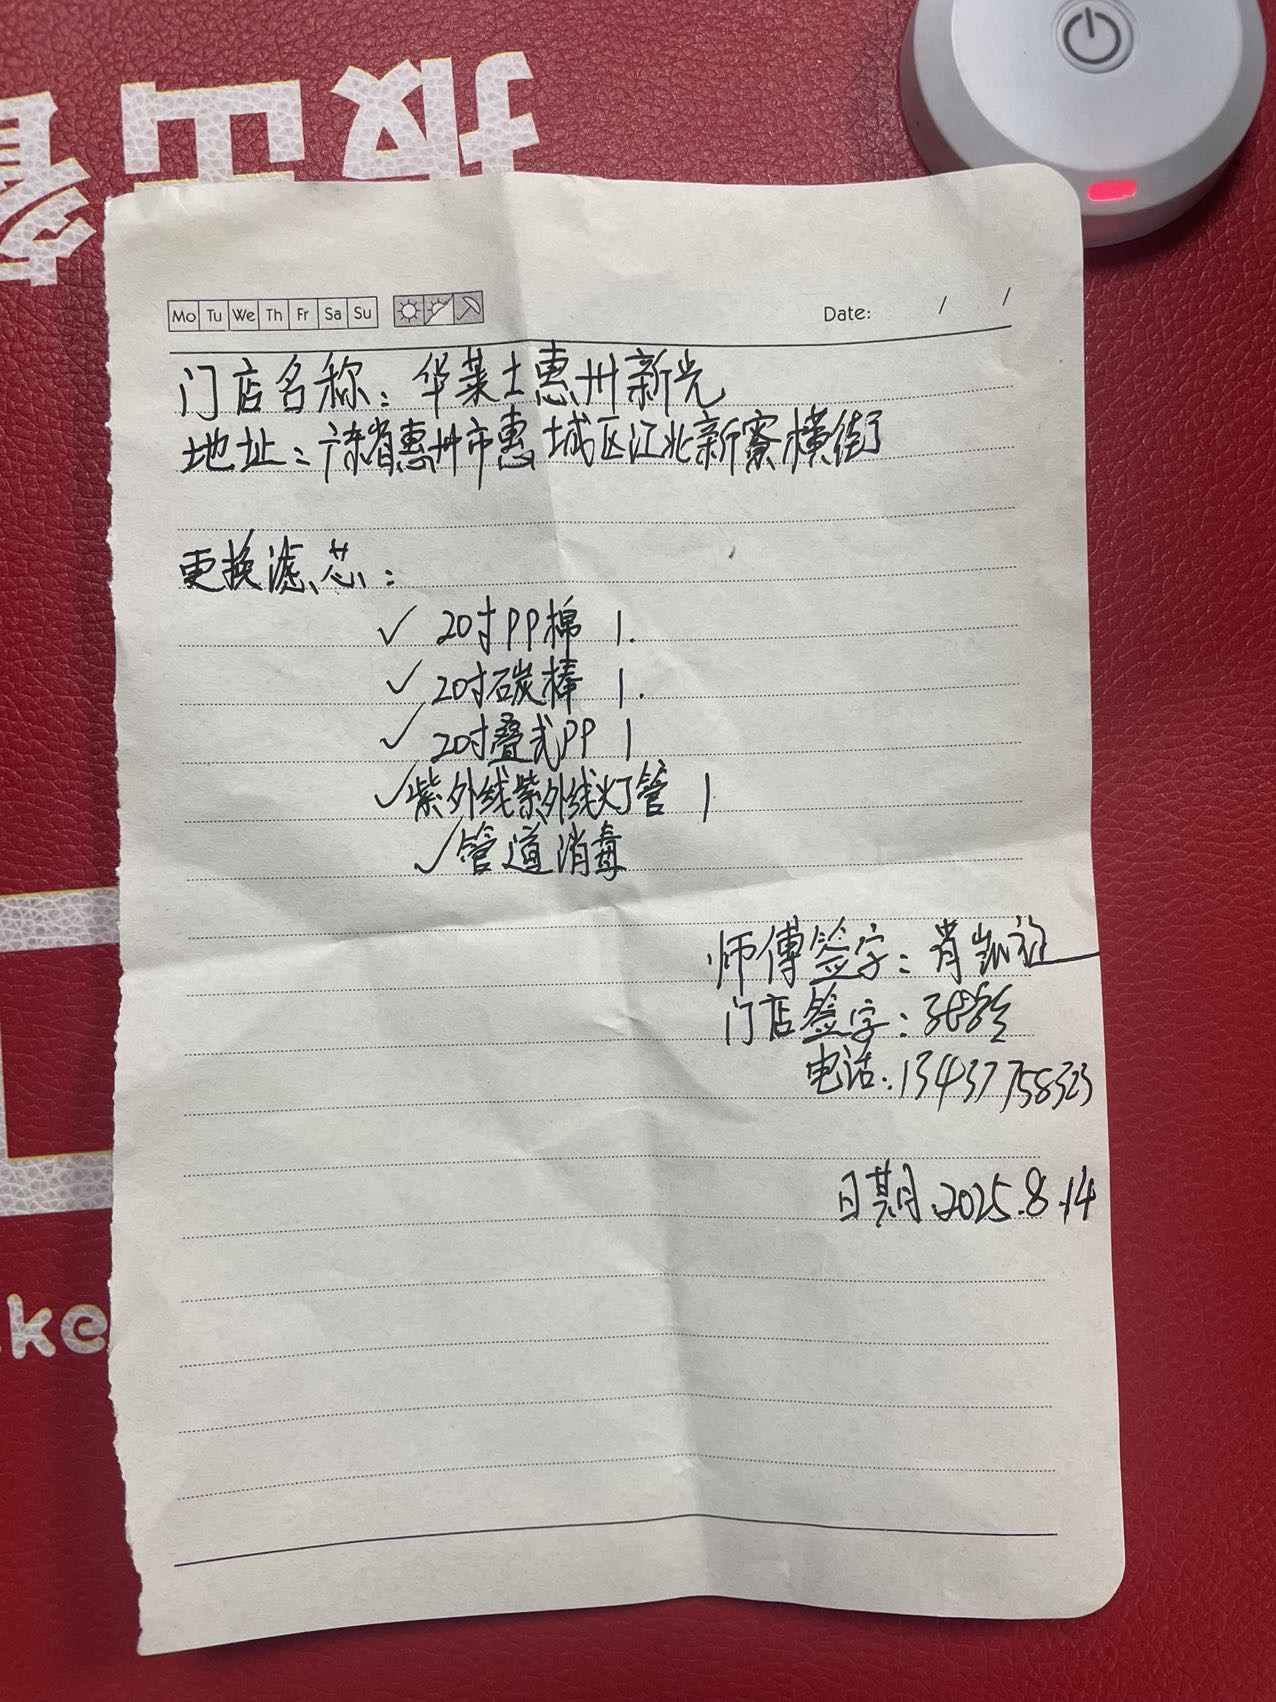 Mo Tu We Th Fr Sa Su Date: / /
门店名称：华莱士惠州新光
地址：广东省惠州市惠城区江北新寮横街
更换滤芯：
✓ 20寸PP棉 1.
✓ 20寸碳棒 1.
✓ 20寸叠式PP 1
✓紫外线紫外线灯管 1
✓管道消毒
师傅签字：肖凯
门店签字：
电话：13437758323
日期.2025.8.14
ke